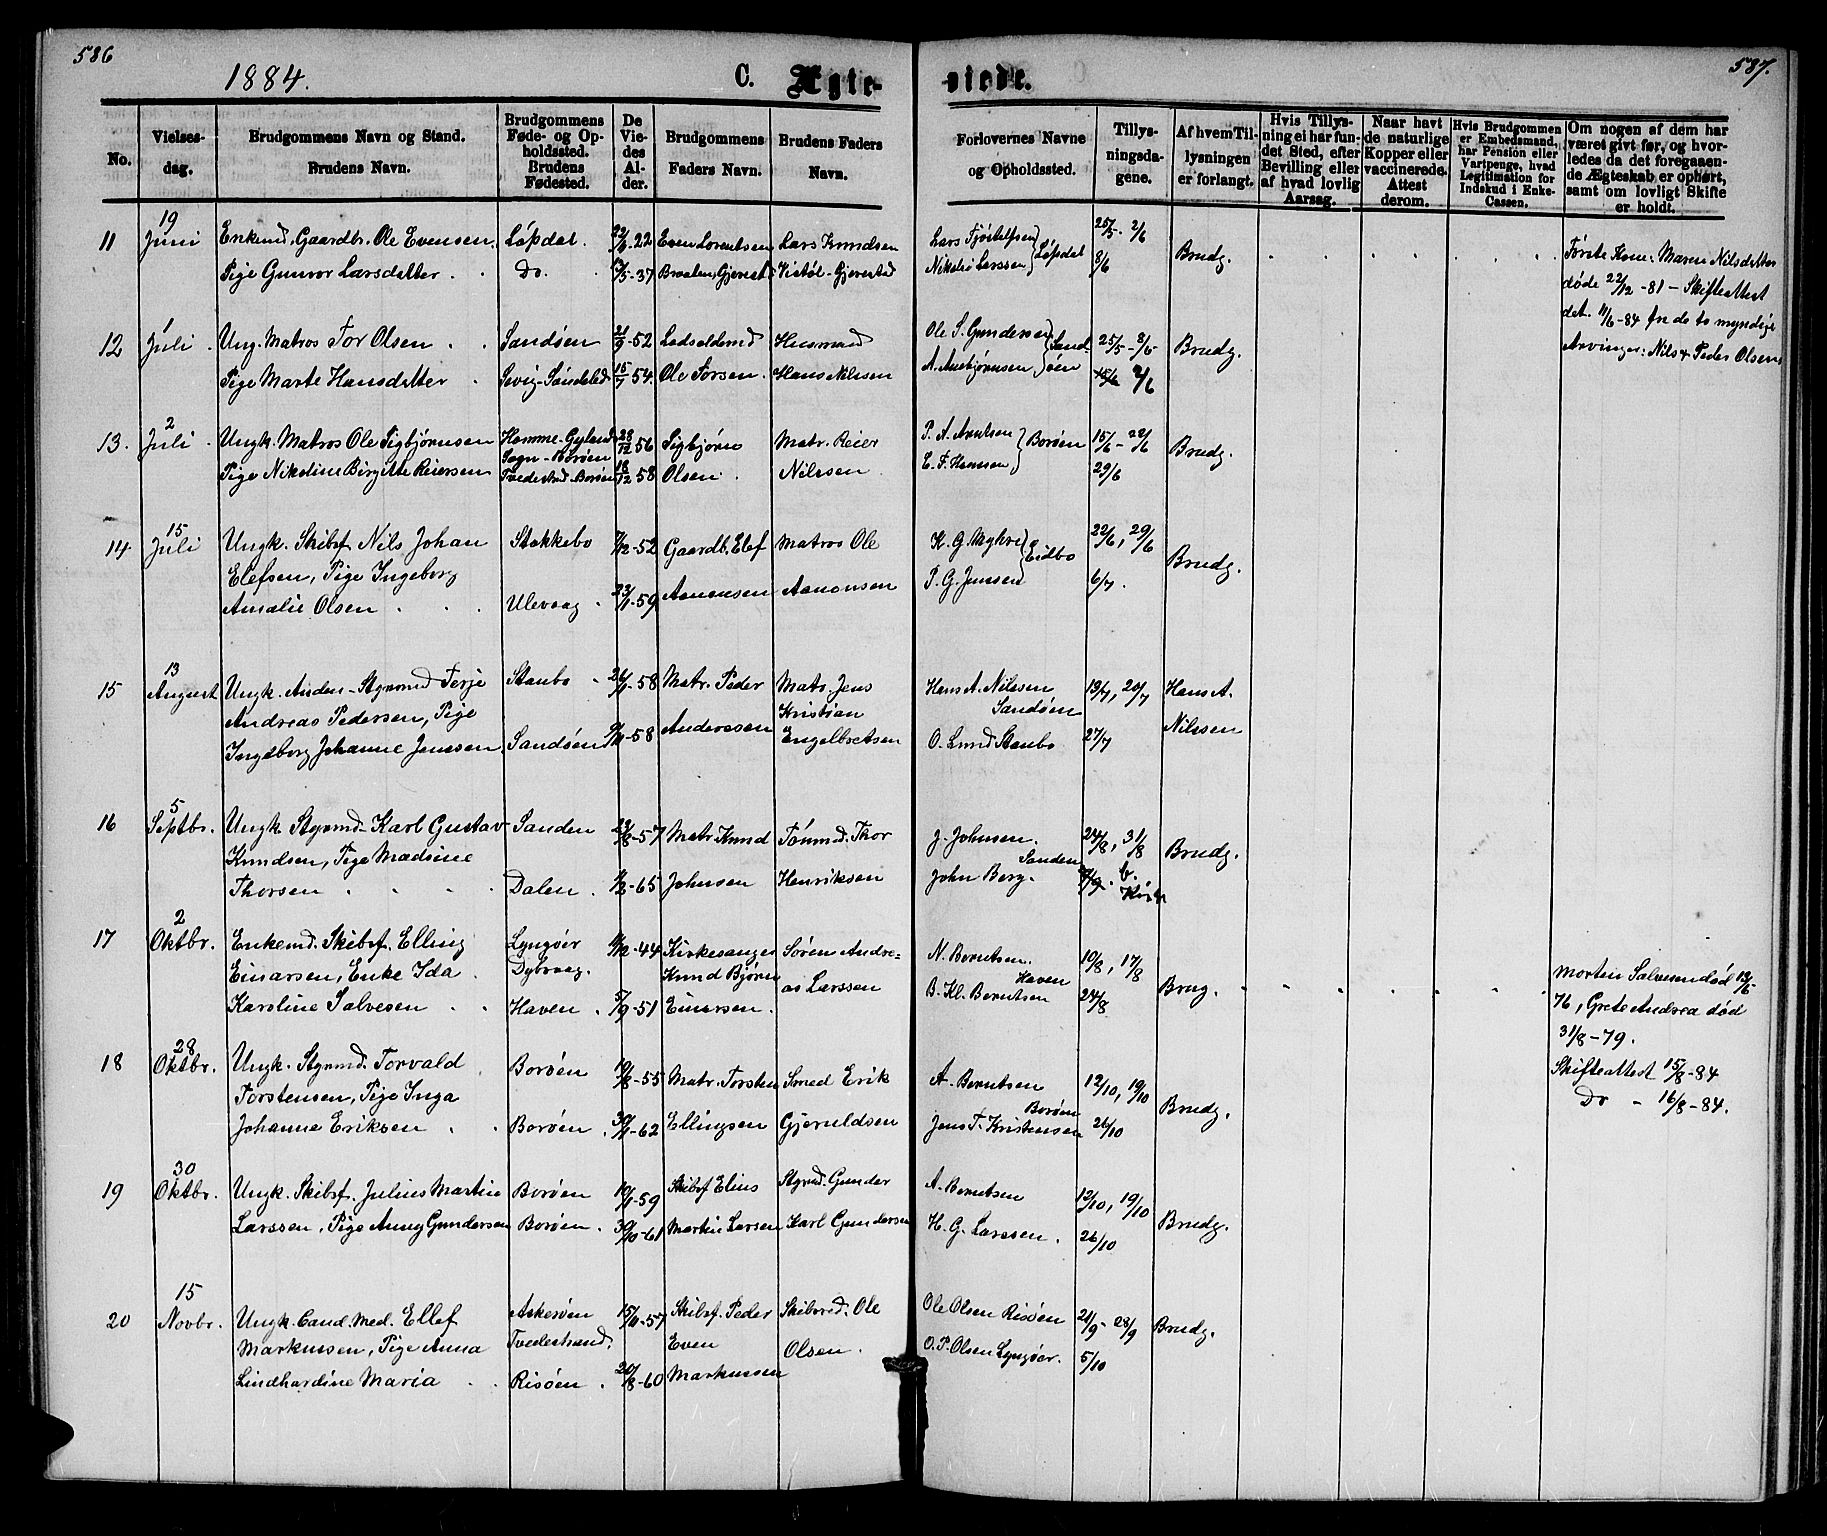 586
1884.
C. Ægte-
viede.
587.
No.
Vielses-
dag.
Brudgommens Navn og Stand.
Brudens Navn.
Brudgommens
Føde- og Op-
holdssted.
Brudens
Fødested.
De
Vie-
des
Al-
der.
Brudgommens
Faders Navn.
Brudens Faders
Navn.
Forlovernes Navne
og Opholdssted.
Tillys-
ningsda-
gene.
Af hvem Til-
lysningen
er forlangt.
Hvis Tillys-
ning ei har fun-
det Sted, efter
Bevilling eller
af hvad lovlig
Aarsag.
Naar havt
de naturlige
Kopper eller
vaccinerede.
Attest
derom.
Hvis Brudgommen
er Embedsmand,
har Pension eller
Vartpenge, hvad
Legitimation for
Indskud i Enke-
Cassen.
Om nogen af dem har
været givt før, og hvor-
ledes da det foregaaen-
de Ægteskab er ophørt,
samt om lovligt Skifte
er holdt.
11 19 Juni Enkemd. Gaardbr. Ole Evensen, Løpdal. -22 Even Lorentsen Lars Knudsen Lars Fjøstelfsen 25/5 - 2/6
Pige Gunvor Larsdatter Do. /5-37 Braaten, Gjerest. Vistøl - Gjerestad Nikolai Larssen Løpdal 8/6 Brudg.
Første Kone: Maren Nilsdatter
døde 22/12 -81 - Skifteattest
dat. 11/6 -84 fra de to myndige
Arvinger: Nils & Peder Olsen
12 1 Juli Ung. Matros Tor Olsen Sandøen 21/9-52 Ladsoldermd Husmand Ole S. Gundersen Sand- 25/5 - 2/6 Brudg.
Pige Marte Hansdatter Sevig-Søndeled 15/7 54. Ole Torsen. Hans Nilssen A. Auebjørnsen øen 2/6
13. 2 Juli Ungk. Matros Ole Sigbjørnsen Homme - Gyland 28/12 56 Sigbjørn Matr. Reier P. A. Arntsen Borøen 15/6 - 22/6 Brudg.
Sogn - Borøen
Pige Nikoline Birgitte Reiersen Tvedestrand-Borøen 18/12 58 Olsen. Nilssen E. F. Hansen 29/6
14 15 Juli Ungk. Skibsf. Nils Johan Stokkebo /12-52 Gaardb. Elef Matros Ole K. G. Myhre Eidbo 22/6, 29/6 Brudg.
Elefsen, Pige Ingeborg
Amalie Olsen Ulevaag 23/ -59 Aanonsen Aanonsen P. G. Jenssen 6/7.
15 13 August Ungk. Anden-Styrmd Terje Staubo 26/ -58 Matr. Peder Matr. Jens Hans A. Nilssen 13/7, 20/7 Hans A.
Andreas Pedersen, Pige Anderssen Kristian Sandøen Nilssen
Ingeborg Johanne Jenssen Sandøen -58 Engelbretsen O. Lund Staubo 27/7
16 5 Septbr. Ungk Styrmd - Karl Gustav Sanden 23/8-57 Matr. Knud Tømmd. Thor J. Johnsen. 24/8, 31/8 Brudg.
Knudsen, Pige Madsine Sanden
Thorsen Dalen -65 Johnsen Henriksen John Berg.
17 2 Oktbr. Enkemd. Skibsf. Elling Lyngøer /12-44 Kirkesanger Søren Andre- N. Berntsen. 10/8, 17/8
Einarsen, Enke Ida Dybvaag. Knud Bjørn as Larssen Haven Brug.
Karoline Salvesen Haven 5/9-51 Einersen. B. Kl. Berntsen 24/8
Morten Salvesen død 12/6-
76, Grete Andrea død
31/8-79.
Skifteattest 15/8-84
Do - 16/8-84.
18 28 Oktbr. Ungk. Styrmd. Torvald Borøen 19/8-55 Matr. Torsten Smed Erik A. Berntsen 12/10, 19/10 Brudg.
Torstensen, Pige Inga Borøen
Johanne Eriksen Borøen. -62 Ellingsen Gjeruldsen Jens T. Kristensen 26/10
19 30 Oktbr. Ungk. Skibsf. Julius Martin Borøen -59 Skibsf Elius Styrmd. Gunder A. Berntsen 12/10, 19/10 Brudg.
Larssen, Pige Anny Gundersen Borøen. 30/10-61 Martin Larsen Karl Gundersen H. G. Larssen. 26/10
20 15 Novbr. Ungk. Cand. Med. Ellef Askerøen 15/11-57 Skibsf. Peder Skibsred. Ole Ole Olsen Risøen 21/9 - 28/9 Brudg.
Markussen, Pige Anna Tvedestrand. Even Olsen. O. P. Olsen Lyngøer. 5/10
Lindhardine Maria Risøen. /8-60 Markussen